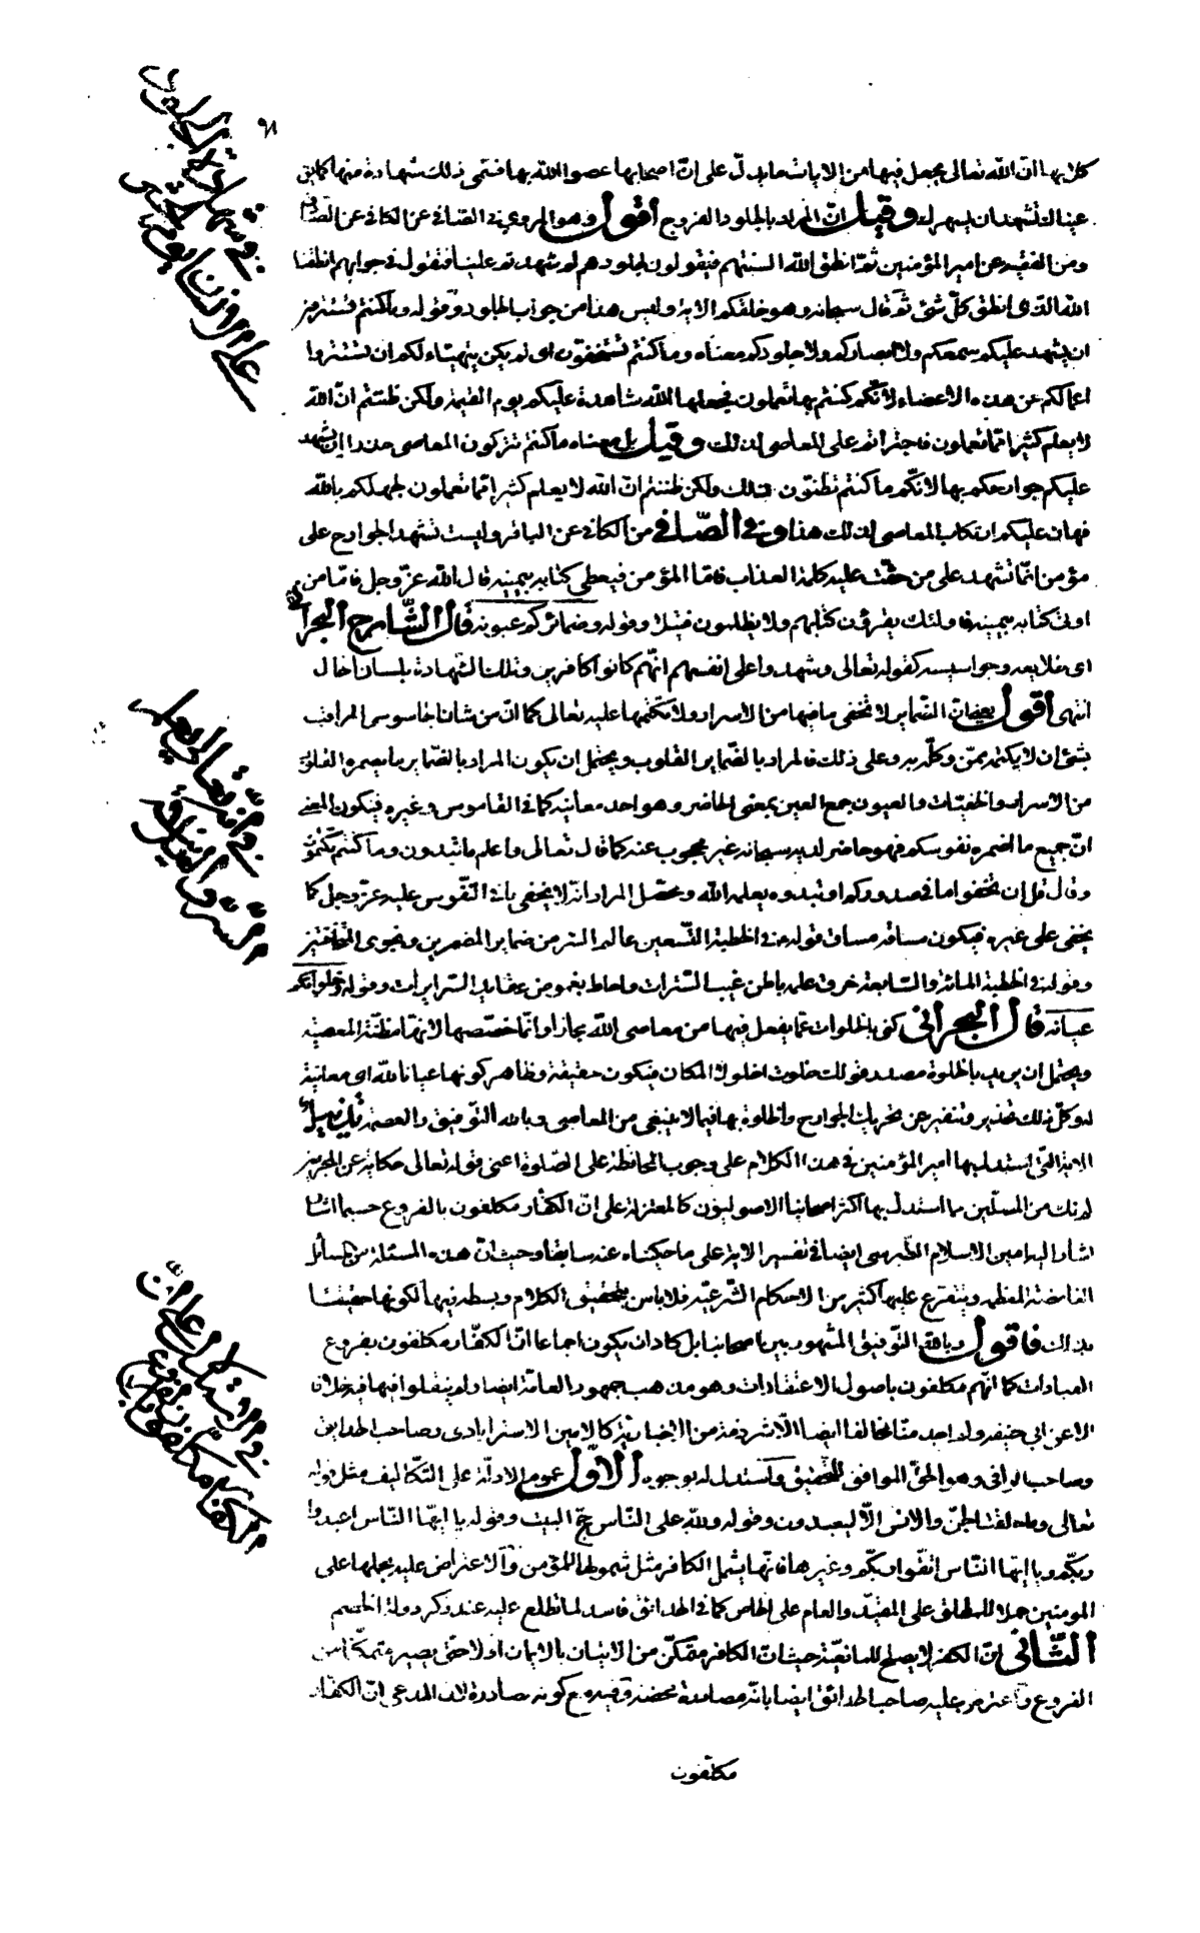 ٩٨
كلابها انّ الله تعالى يجعل فيها من الايات ما يدلّ على انّ اصحابها عصوا الله بها فسمّى ذلك شهادة منها كما يق
عيناك تشهدان بسهرك وقيل انّ المراد بالجلود الفروج اقول وهو المروي في الصّافي عن الكافي عن الصّادق
ومن الفقيه عن امير المؤمنين ثمّ انطق الله السنتهم فيقولون لجلودهم لم شهدتم علينا فتقول في جوابهم انطقنا
الله الّذى انطق كلّ شئ ثمّ قال سبحانه وهو خلقكم الاية وليس هذا من جواب الجلود وقوله وما كنتم تستترون
ان يشهد عليكم سمعكم ولا ابصاركم ولا جلودكم معناه وما كنتم تستخفون اى لم يكن يتهيّاء لكم ان تستتروا
اعمالكم عن هذه الاعضاء لانّكم كنتم بها تعملون فجعلها الله شاهدة عليكم يوم القيمة ولكن ظننتم انّ الله
لا يعلم كثيرا ممّا تعملون فاجترأتم على المعاصى لذلك وقيل بل معناه ما كنتم تتركون المعاصى حذرا ان تشهد
عليكم جوارحكم بها لانّكم ما كنتم تظنّون ذلك ولكن ظننتم انّ الله لا يعلم كثيرا ممّا تعملون لجهلكم بالله
فهان عليكم ارتكاب المعاصى لذلك هذا وفي الصّافي من الكافي عن الباقر وليست تشهد الجوارح على
مؤمن انّما تشهد على من حقّت عليه كلمة العذاب فامّا المؤمن فيعطى كتابه بيمينه قال الله عزّ وجل فامّا من
اوتى كتابه بيمينه فاولئك يقرؤن كتابهم ولا يظلمون فتيلا وقوله وضمائركم عيونه قال الشّارح البحراني
اى طلايعه وجواسيسه كقوله تعالى وشهدوا على انفسهم انّهم كانوا كافرين وتلك الشّهادة بلسان الحال
انتهى اقول يعنى انّ الضّماير لا تخفى ما فيها من الاسرار ولا تكتمها عليه تعالى كما انّ من شان الجاسوس المراقب
بشئ ان لا يكتمه ممّن وكّله به وعلى ذلك فالمراد بالضّماير القلوب ويحتمل ان يكون المراد بالضّماير ما يضمره القلوب
من الاسرار والخفيّات والعيون جمع العين بمعنى الحاضر وهو احد معانيه كما فى القاموس وغيره فيكون المعنى
انّ جميع ما اضمره نفوسكم فهو حاضر لديه سبحانه غير محجوب عنه كما قال تعالى واعلم ما تبدون وما كنتم تكتمون
وقال قل ان تخفوا ما فى صدوركم او تبدوه يعلمه الله ومحصّل المراد انّه لا يخفى ما فى النّفوس عليه عزّ وجل كما
يخفى على غيره فيكون مساقه مساق قوله فى الخطبة التّسعين عالم السّر من ضماير المضمرين ونجوى المتخافتين
وقوله فى الخطبة المائة والسّابعة خرق علمه باطن غيب السّترات واحاط بغموض عقايد السّريرات وقوله وخلواتكم
عيانه قال البحراني كنى بالخلوات عمّا يفعل فيها من معاصى الله مجازا وانّما خصّصها لانّها مظنّة المعصية
ويحتمل ان يريد بالخلوة مصدر قولك خلوت اخلو لا المكان فيكون حقيقة وظاهر كونها عيانا لله اى معاينة
له وكلّ ذلك تحذير وتنفير عن تحريك الجوارح والخلوة بها فيما لا ينبغى من المعاصى وبالله التّوفيق والعصمة تذييل
الاية الّتى استدل بها امير المؤمنين فى هذا الكلام على وجوب المحافظة على الصّلوة اعنى قوله تعالى حكاية عن المجرمين
لم نك من المصلّين ممّا استدل بها اكثر اصحابنا الاصوليّون كالمعتزلة على انّ الكفّار مكلّفون بالفروع حسبما
اشار اليه امين الاسلام الطّبرسى ايضا فى تفسير الاية على ما حكيناه عنه سابقا وحيث انّ هذه المسئلة من المسائل
الغامضة المعظمة ويتفرّع عليها كثير من الاحكام الشّرعيّة فلا باس بتحقيق الكلام وبسطه فيها لكونها حقيقتا
بذلك فاقول وبالله التّوفيق المشهور بين اصحابنا بل كاد ان يكون اجماعا انّ الكفّار مكلّفون بفروع
العبادات كما انّهم مكلّفون باصول الاعتقادات وهو مذهب جمهور العامّة ايضا ولم ينقلوا فيها خلافا
الا عن ابى حنيفة ولم اجد منّا مخالفا ايضا الّا شرذمة من الاخباريّة كالامين الاسترابادى وصاحب الحدايق
وصاحب الوافى وهو الحقّ الموافق للتّحقيق واستدل له بوجوه الاوّل عموم الادلّة على التّكاليف مثل قوله
تعالى وما خلقت الجنّ والانس الّا ليعبدون وقوله ولله على النّاس حجّ البيت وقوله يا ايّها النّاس اعبدوا
ربّكم ويا ايّها النّاس اتّقوا ربّكم وغيرها فانّها يشمل الكافر مثل شمولها للمؤمن والاعتراض عليه بحملها على
المومنين حملا للمطلق على المقيّد والعام على الخاص كما فى الحدائق فاسد لما تطلع عليه عند ذكر ادلة الخصم
الثّانى انّ الكفر لا يصلح للمانعيّة حيث انّ الكافر متمكّن من الاتيان بالايمان اولا حتّى يصير متمكّنا من
الفروع واعترض عليه صاحب الحدائق ايضا بانّه مصادرة محضة وفيه منع كونه مصادرة لانّ المدعى انّ الكفّار
مكلّفون
فى شهادة الجلود
على الانسان يوم
فى انّه تعالى يعلم
السّرّ والعلانية
فى الاستدلال على انّ
الكفّار مكلّفون بالفروع